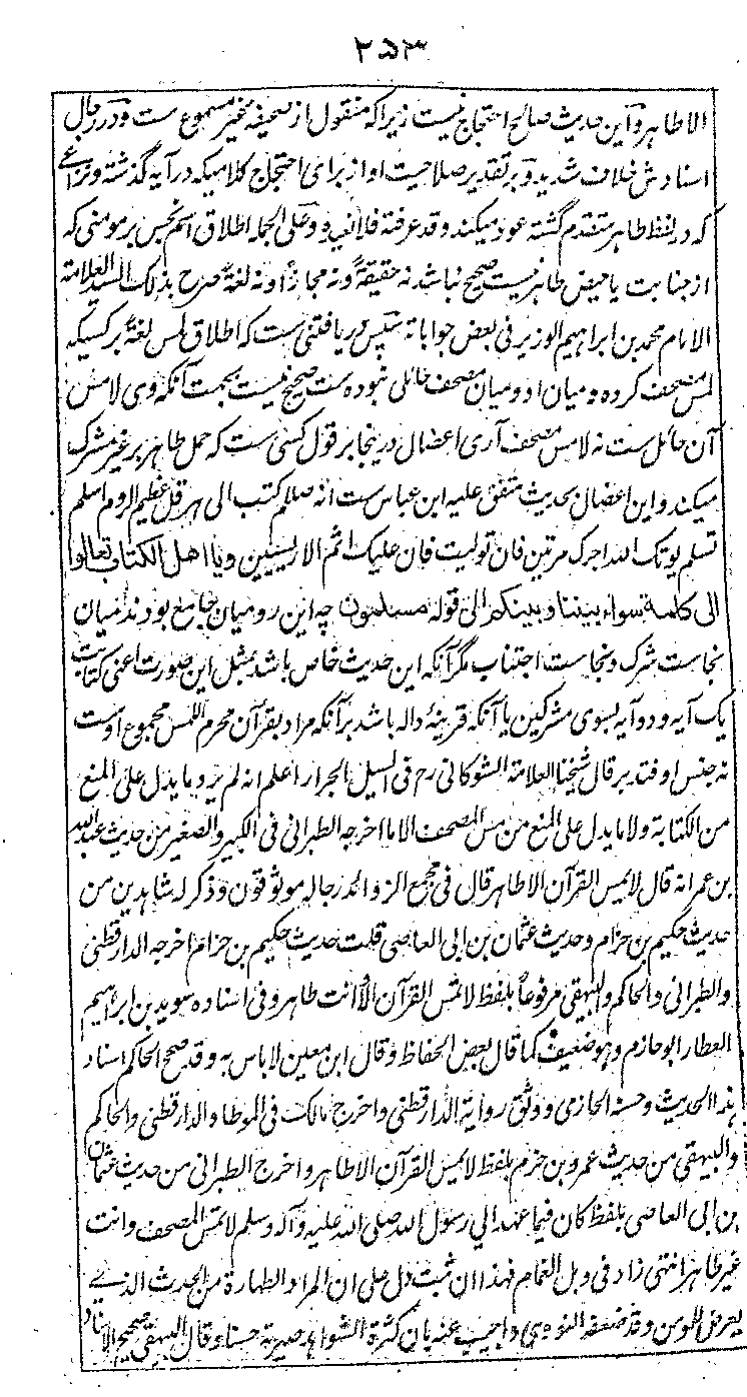 ۲۵۳
الاطاهر و این حدیث صالح احتجاج نیست زیرا که منقول از صحیفه غیر مسموع ست و در رجال
اسنادش خلاف شدید و بر تقدیر صلاحیت او از برای احتجاج کلامیکه در آیه گذشته ونزاعے
که در لفظ طاهر متقدم گشته عود میکند وقد عرفته فلا نعیده وعلی الجمله اطلاق اسم نجس بر مومنی که
از جنابت یا حیض طاهر نیست صحیح نباشد نه حقیقةً ونه مجازاً ونه لغةً صرح بذلک السید العلامة
الامام محمد بن ابراهیم الوزیر فی بعض جواباته سپس دریافتنی ست که اطلاق لمس لغةً بر کسیکه
لمس مصحف کرده و میان او و میان مصحف حائلی نبوده ست صحیح نیست بجهت آنکه وی لامس
آن حائل ست نه لامس مصحف آری اعضال درینجا بر قول کسی ست که حمل طاهر بر غیر مشرک
میکند و این اعضال بحدیث متفق علیه ابن عباس ست انه صللم کتب الی هرقل عظیم الروم اسلم
تسلم یوتک الله اجرک مرتین فان تولیت فان علیک اثم الاریسیین ویا اهل الکتاب تعالوا
الی کلمة سواء بیننا وبینکم الی قوله مسلمون چه این رومیان جامع بودند میان
نجاست شرک و نجاست اجتناب مگر آنکه این حدیث خاص باشد بمثل این صورت اعنی کتابت
یک آیه و دو آیه بسوی مشرکین یا آنکه قرینۀ داله باشد برآنکه مراد بقرآن محرم اللمس مجموع اوست
نه جنس او فتدبر قال شیخنا العلامة الشوکانی رح فی السیل الجرار اعلم انه لم یرد ما یدل علی المنع
من الکتابة ولا ما یدل علی المنع من مس المصحف الا ما اخرجه الطبرانی فی الکبیر والصغیر من حدیث عبدالله
بن عمر انه قال لا یمس القرآن الا طاهر قال فی مجمع الزوائد رجاله موثوقون وذکر له شاهدین من
حدیث حکیم بن حزام وحدیث عثمان بن ابی العاصی قلت حدیث حکیم بن حزام اخرجه الدارقطنی
والطبرانی والحاکم والبیهقی مرفوعاً بلفظ لا تمس القرآن الا وانت طاهر وفی اسناده سوید بن ابراهیم
العطار ابو حازم وهو ضعیف کما قال بعض الحفاظ وقال ابن معین لا باس به وقد صحح الحاکم اسناد
هذا الحدیث وحسنه الحازمی ووثق رواته الدارقطنی واخرج مالک فی الموطا والدارقطنی والحاکم
والبیهقی من حدیث عمرو بن حزم بلفظ لا یمس القرآن الا طاهر واخرج الطبرانی من حدیث عثمان
بن ابی العاصی بلفظ کان فیما عهد الی رسول الله صلی الله علیه وآله وسلم لا تمس المصحف وانت
غیر طاهر انتهی زاد فی وبل الغمام فهذا ان ثبت دل علی ان المراد الطهارة من الحدث الذے
یعرض للمومن وقد ضعفه النووی واجیب عنه بان کثرة الشواهد صیرته حسنا وقال البیهقی صحیح الاسناد